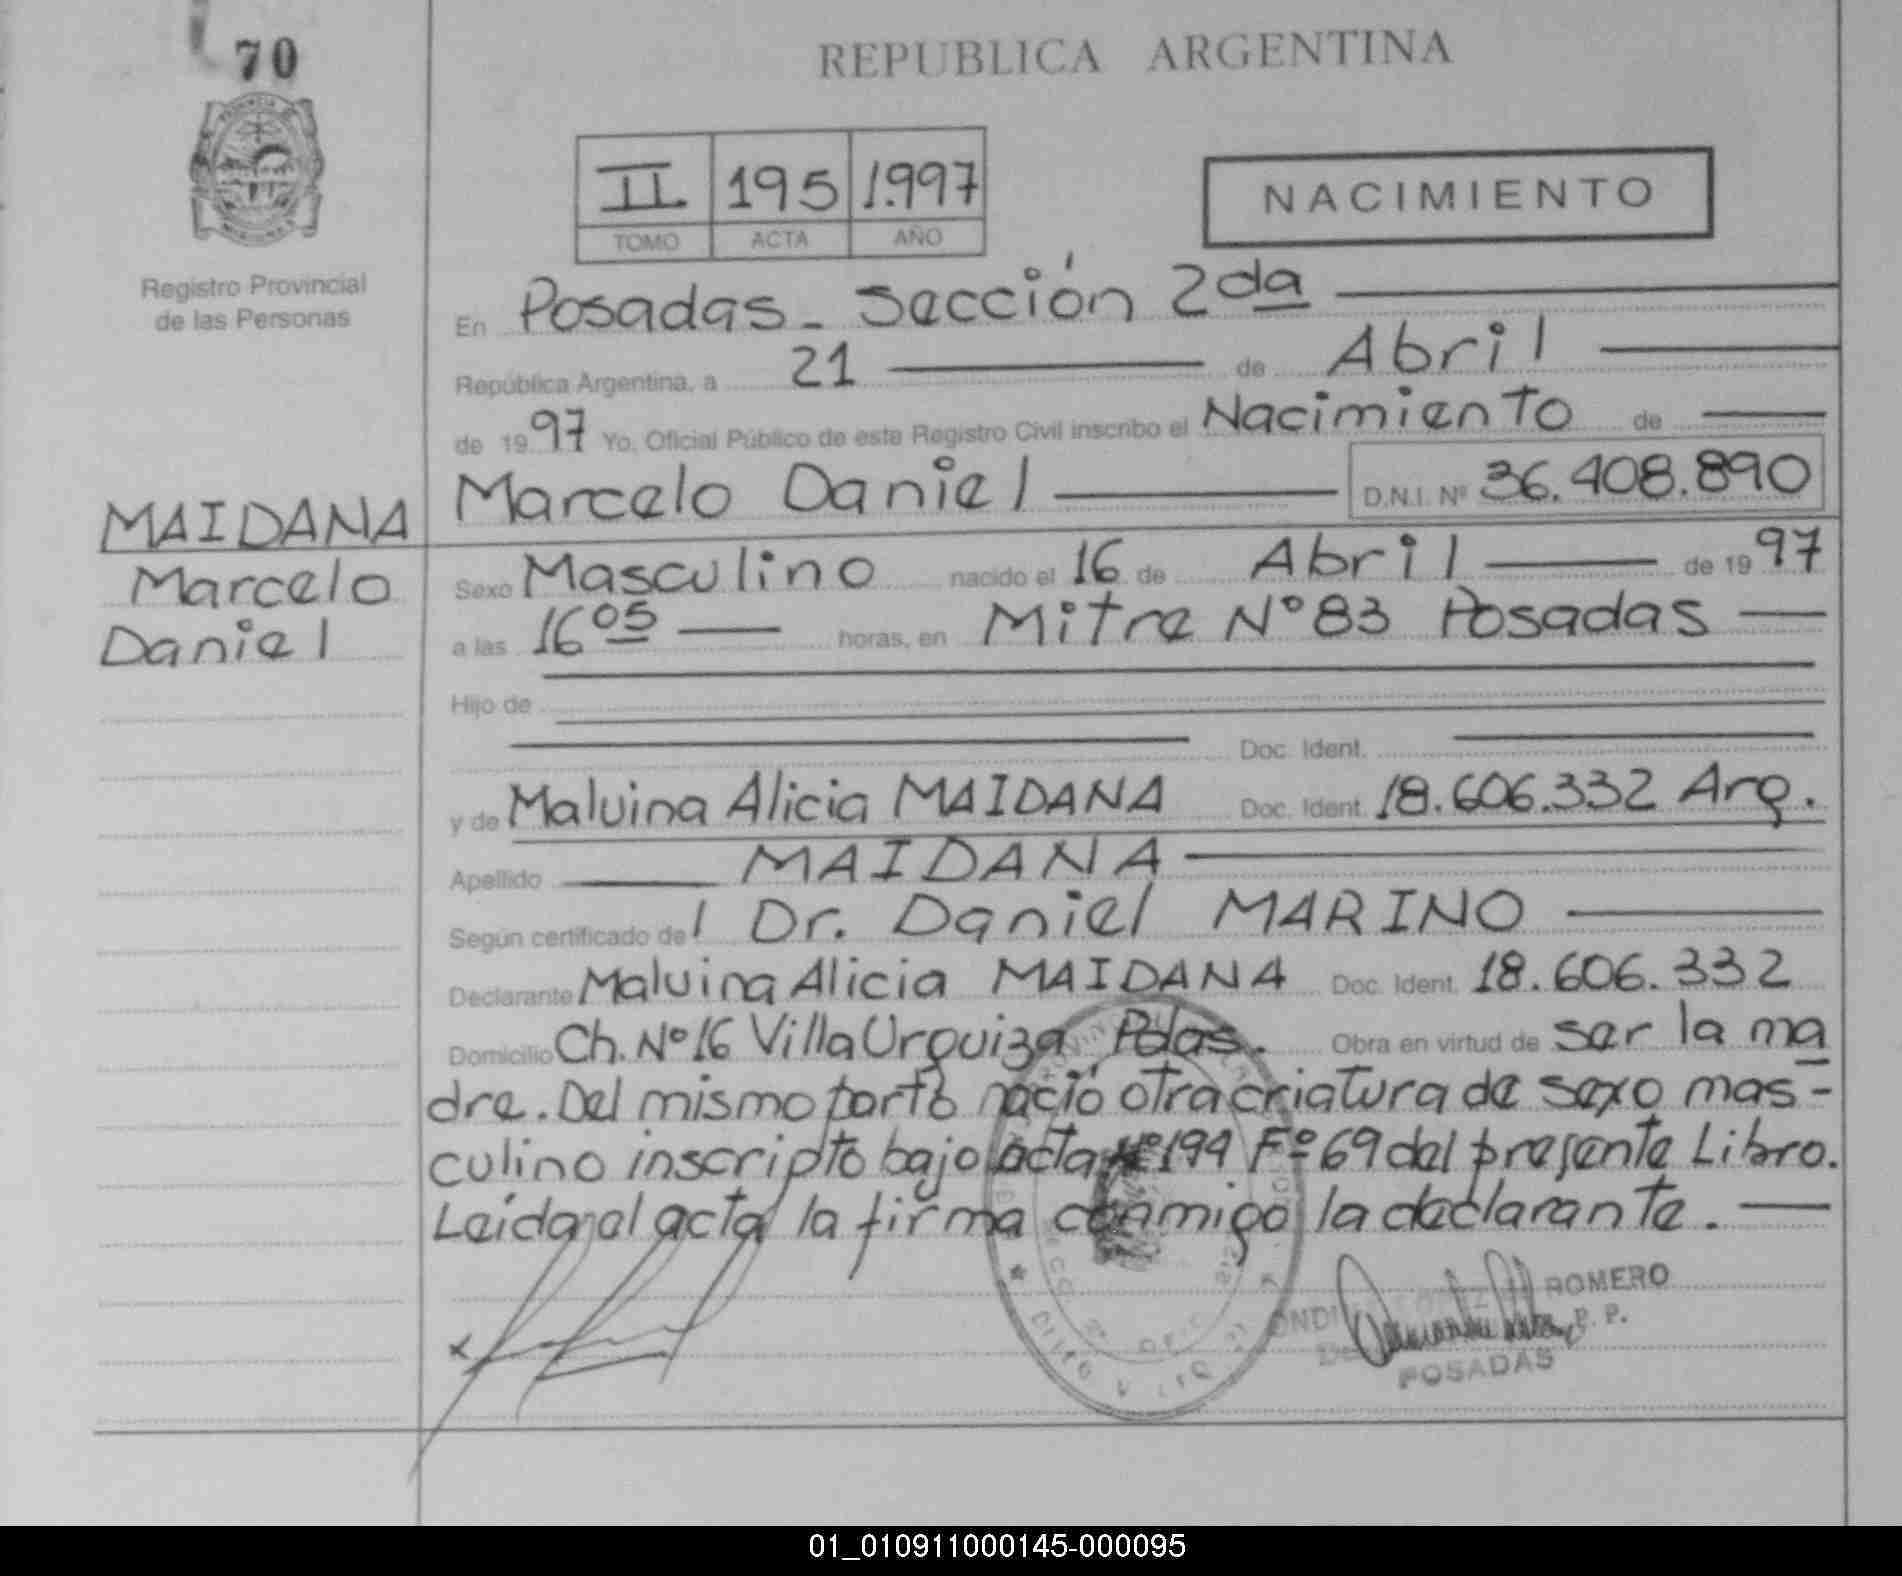 70
REPUBLICA ARGENTINA
II 195 1.997
TOMO ACTA AÑO
NACIMIENTO
Registro Provincial
de las Personas
En Posadas - Sección 2da
República Argentina, a 21 de Abril
de 1997 Yo, Oficial Público de este Registro Civil inscribo el Nacimiento de
Marcelo Daniel D.N.I. Nº 36.408.890
MAIDANA
Marcelo
Daniel
Sexo Masculino nacido el 16 de Abril de 1997
a las 16 05 horas, en Mitre Nº 83 Posadas
Hijo de
Doc. Ident.
y de Malvina Alicia MAIDANA Doc. Ident. 18.606.332 Arg.
Apellido MAIDANA
Según certificado del Dr. Daniel MARINO
Declarante Malvina Alicia MAIDANA Doc. Ident. 18.606.332
Domicilio Ch. Nº 16 Villa Urquiza Pdas. Obra en virtud de ser la ma
dre. Del mismo parto nació otra criatura de sexo mas-
culino inscripto bajo acta Nº 194 Fº 69 del presente Libro.
Leída el acta la firma conmigo la declarante.
ROMERO
P. P.
POSADAS
01_010911000145-000095